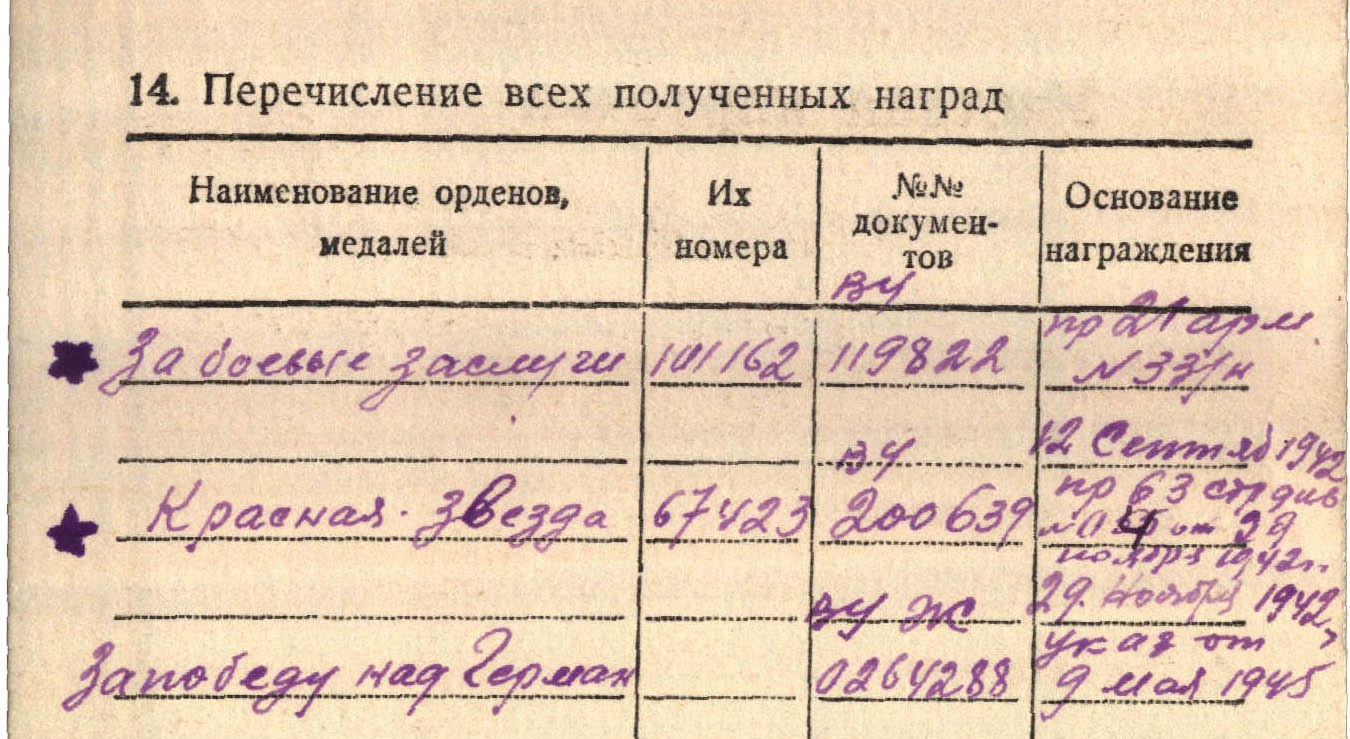 14. Перечисление всех полученных наград
Наименование орденов, медалей
Их номера
№№ докумен-
тов
Основание награждения
ВЧ
пр 21 арм
За боевые заслуги 101162 119822 № 331/н
ВЧ 12 Сентяб 1942
пр 63 стр див
Красная звезда 67423 200639 от 29
ноября 1942г.
29. Ноября 1942,
ВЧ Ж указ от
За победу над Герман 0264288 9 мая 1945